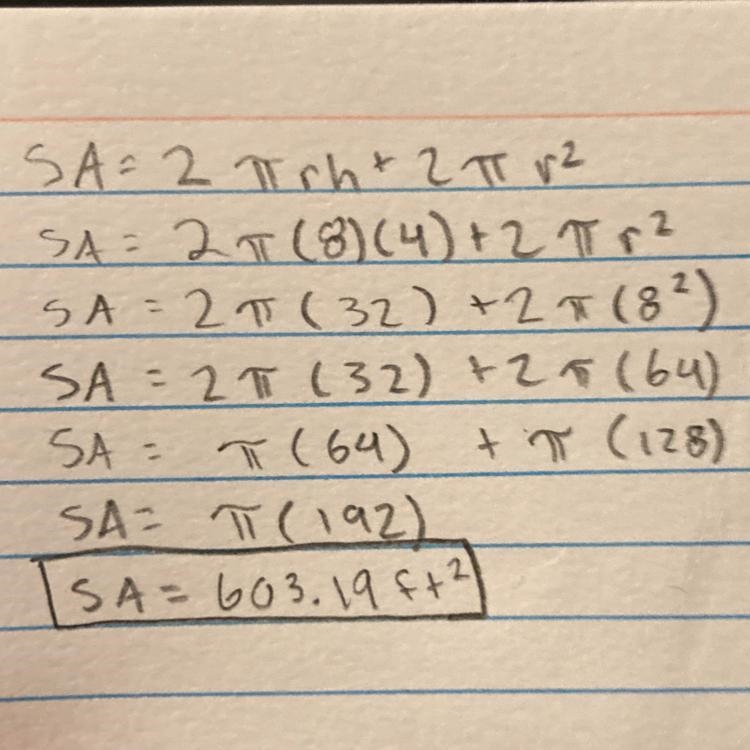 SA = 2 π rh + 2 π r²
SA = 2 π (8)(4) + 2 π r²
SA = 2 π (32) + 2 π (8²)
SA = 2 π (32) + 2 π (64)
SA = π (64) + π (128)
SA = π (192)
SA = 603.19 ft²